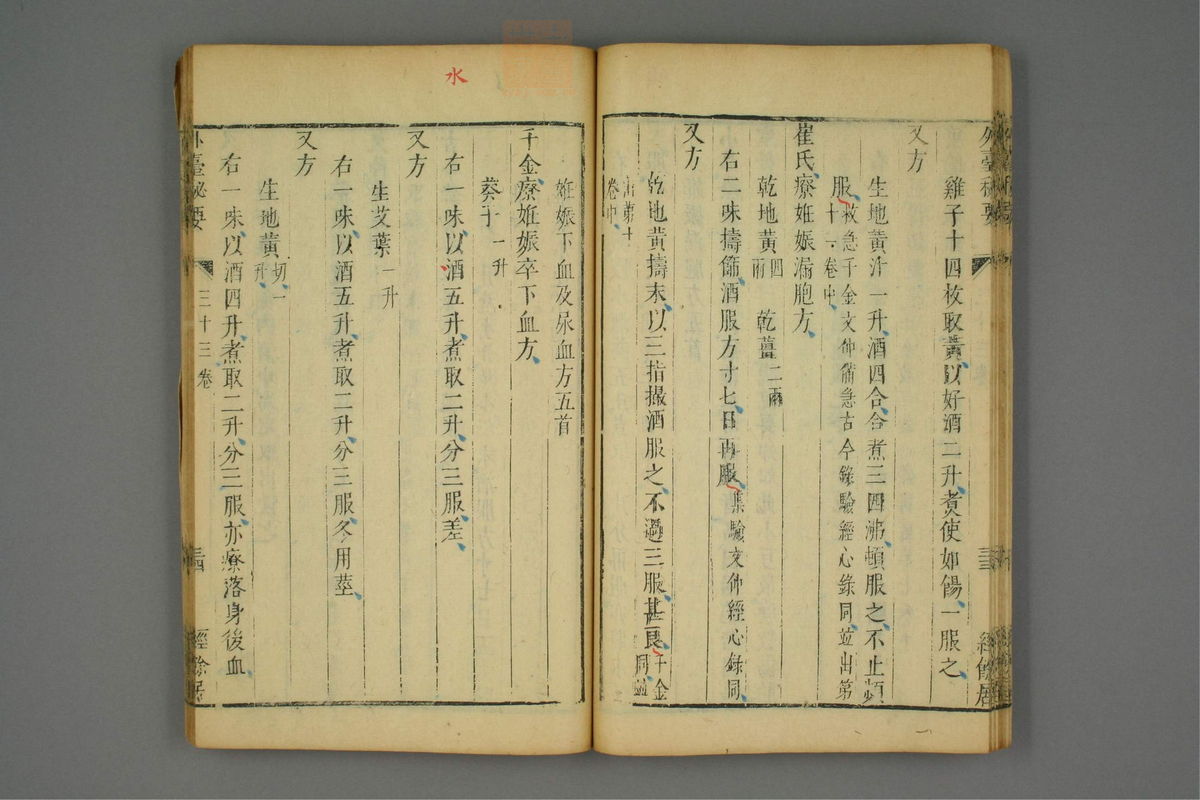 外臺秘要
雞子十四枚取黃以好酒二升煮使如餳一服之
又方
生地黃汁一升酒四合合煮三四沸頓服之不止頻
服救急千金文仲備急古今錄驗經心錄同並出第
十一卷中
崔氏療姙娠漏胞方
乾地黃四兩 乾薑二兩
右二味擣篩酒服方寸匕日再服集驗文仲經心錄同
又方
乾地黃擣末以三指撮酒服之不過三服甚良千金同並
出第十卷中
經餘居
水
姙娠下血及尿血方五首
千金療姙娠卒下血方
葵子一升
右一味以酒五升煮取二升分三服差
又方
生艾葉一升
右一味以酒五升煮取二升分三服冬用莖
又方
生地黃切一升
右一味以酒四升煮取二升分三服亦療落身後血
外臺秘要
三十三卷
經餘居